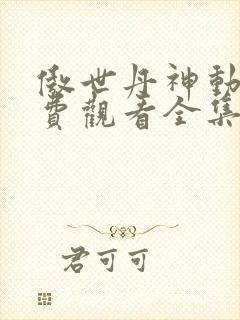 傲世丹神動
費觀看全集
君可可